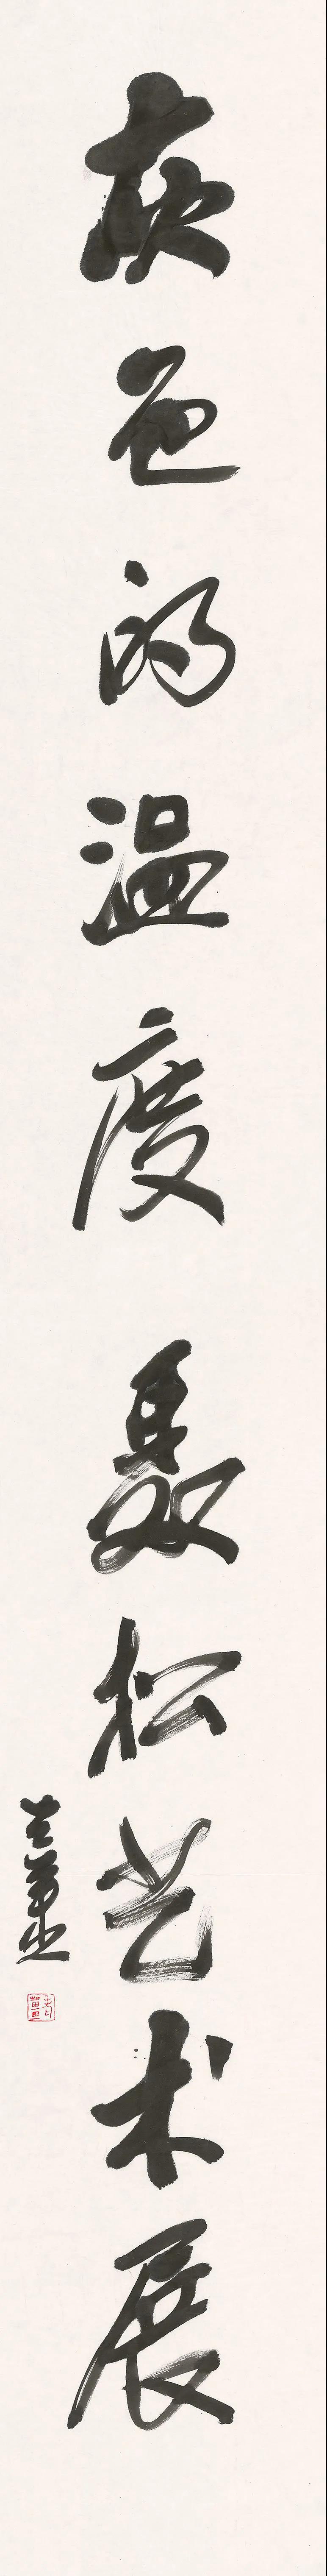 灰色的温度 聂松艺术展